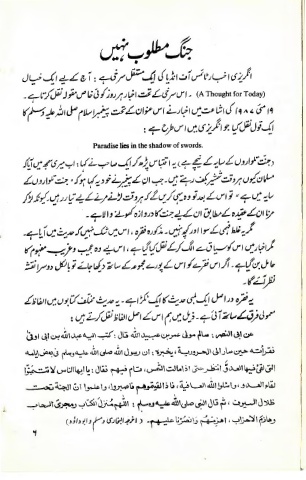 جنگ مطلوب نہیں
انگریزی اخبار ٹائمس آف انڈیا کی ایک مستقل سرخی ہے: آج کے لیے ایک خیال
(A Thought for Today) اس سرخی کے تحت اخبار ہر روز کوئی خاص مقولہ نقل کرتا ہے۔
۱۹ مئی ۱۹۸۷ کی اشاعت میں اخبار نے اس عنوان کے تحت پیغمبر اسلام صلی اللہ علیہ وسلم کا
ایک قول نقل کیا جو انگریزی میں اس طرح ہے:
Paradise lies in the shadow of swords.
(جنت تلواروں کے سایہ کے نیچے ہے) یہ اقتباس پڑھ کر ایک صاحب نے کہا: اب میری سمجھ میں آیا کہ
مسلمان کیوں ہر وقت شمشیر بکف رہتے ہیں۔ جب ان کے پیغمبر نے خود یہ کہا ہو کہ "جنت تلواروں کے
سایہ میں ہے" تو اس کے بعد تو وہ یہی کریں گے کہ ہر وقت لڑنے کے لیے تیار رہیں۔ کیونکہ لڑ کر
مرنا ان کے عقیدہ کے مطابق ان کے لیے جنت کا دروازہ کھولنے والا ہے۔
مگر یہ غلط فہمی کے سوا اور کچھ نہیں۔ مذکورہ فقرہ، اس میں شک نہیں کہ حدیث میں آیا ہے۔
مگر اخبار میں اس کو سیاق سے الگ کر کے نقل کیا گیا ہے، اس لیے وہ عجیب و غریب مفہوم کا
حامل بن گیا ہے۔ اگر اس فقرے کو اس کے پورے مجموعہ کے ساتھ دیکھا جائے تو بالکل دوسرا نقشہ
نظر آئے گا۔
یہ فقرہ در اصل ایک لمبی حدیث کا ایک ٹکڑا ہے۔ یہ حدیث مختلف کتابوں میں الفاظ کے
معمولی فرق کے ساتھ آئی ہے۔ ذیل میں ہم اس کے الفاظ نقل کرتے ہیں:
عن ابی النضر: سالم مولى عمر بن عبيد الله قال: كتب اليه عبد الله بن ابى اوفى
فقرأته حين سار الى الحرورية، يخبره: ان رسول الله صلى الله عليه وسلم فى بعض ايامه
التى لقى فيها العدو انتظر حتى اذا مالت الشمس، قام فيهم فقال: يا ايها الناس لا تتمنوا
لقاء العدو، واسئلوا الله العافية، فاذا لقيتموهم فاصبروا، واعلموا ان الجنة تحت
ظلال السيوف، ثم قال النبى صلى الله عليه وسلم: اللهم منزل الكتاب ومجرى السحاب
وهازم الاحزاب، اهزمهم وانصرنا عليهم۔ (اخرجہ البخاری ومسلم وابو داؤد)
۶